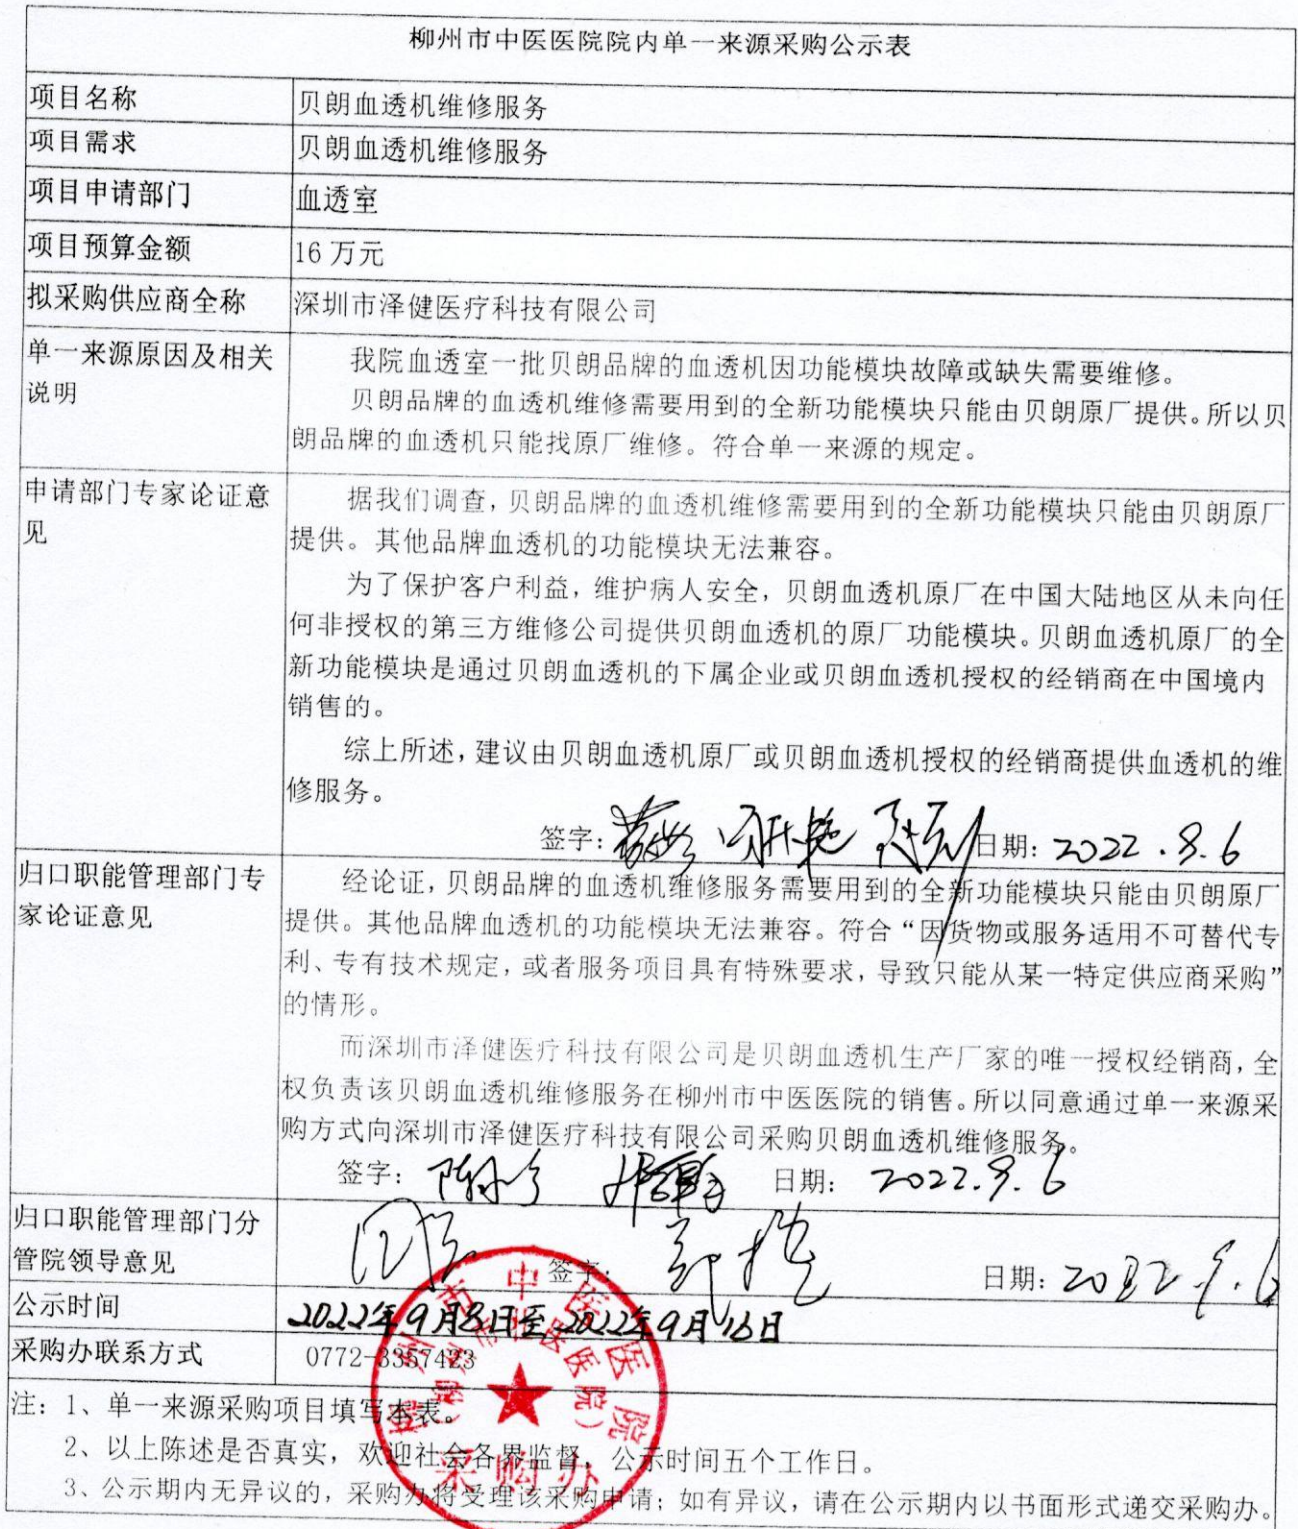 柳州市中医医院院内单一来源采购公示表
项目名称
贝朗血透机维修服务
项目需求
贝朗血透机维修服务
项目申请部门
血透室
项目预算金额
16 万元
拟采购供应商全称
深圳市泽健医疗科技有限公司
单一来源原因及相关
说明
我院血透室一批贝朗品牌的血透机因功能模块故障或缺失需要维修。
贝朗品牌的血透机维修需要用到的全新功能模块只能由贝朗原厂提供。所以贝
朗品牌的血透机只能找原厂维修。符合单一来源的规定。
申请部门专家论证意
见
据我们调查，贝朗品牌的血透机维修需要用到的全新功能模块只能由贝朗原厂
提供。其他品牌血透机的功能模块无法兼容。
为了保护客户利益，维护病人安全，贝朗血透机原厂在中国大陆地区从未向任
何非授权的第三方维修公司提供贝朗血透机的原厂功能模块。贝朗血透机原厂的全
新功能模块是通过贝朗血透机的下属企业或贝朗血透机授权的经销商在中国境内
销售的。
综上所述，建议由贝朗血透机原厂或贝朗血透机授权的经销商提供血透机的维
修服务。
签字： 日期：2022.9.6
归口职能管理部门专
家论证意见
经论证，贝朗品牌的血透机维修服务需要用到的全新功能模块只能由贝朗原厂
提供。其他品牌血透机的功能模块无法兼容。符合“因货物或服务适用不可替代专
利、专有技术规定，或者服务项目具有特殊要求，导致只能从某一特定供应商采购”
的情形。
而深圳市泽健医疗科技有限公司是贝朗血透机生产厂家的唯一授权经销商，全
权负责该贝朗血透机维修服务在柳州市中医医院的销售。所以同意通过单一来源采
购方式向深圳市泽健医疗科技有限公司采购贝朗血透机维修服务。
签字： 日期： 2022.9.6
归口职能管理部门分
管院领导意见
签字： 日期：2022.9.6
公示时间
2022年9月8日至2022年9月16日
采购办联系方式
0772-3357423
柳州市中医医院
（柳州市壮医医院）
采购办
注：1、单一来源采购项目填写本表。
2、以上陈述是否真实，欢迎社会各界监督，公示时间五个工作日。
3、公示期内无异议的，采购办将受理该采购申请；如有异议，请在公示期内以书面形式递交采购办。